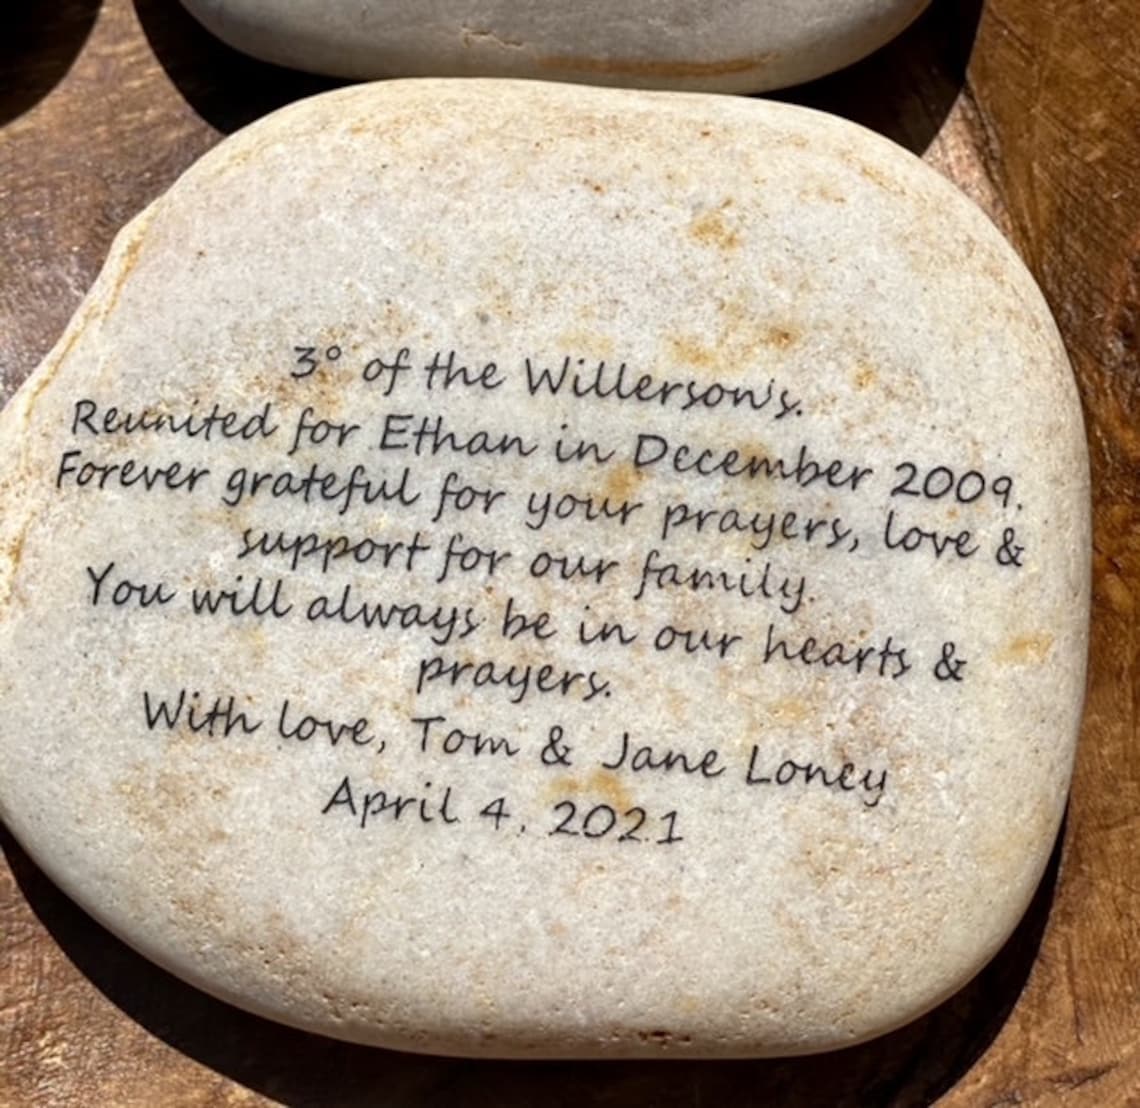 3° of the Willerson's.
Reunited for Ethan in December 2009.
Forever grateful for your prayers, love &
support for our family.
You will always be in our hearts &
prayers.
With love, Tom & Jane Loney
April 4, 2021